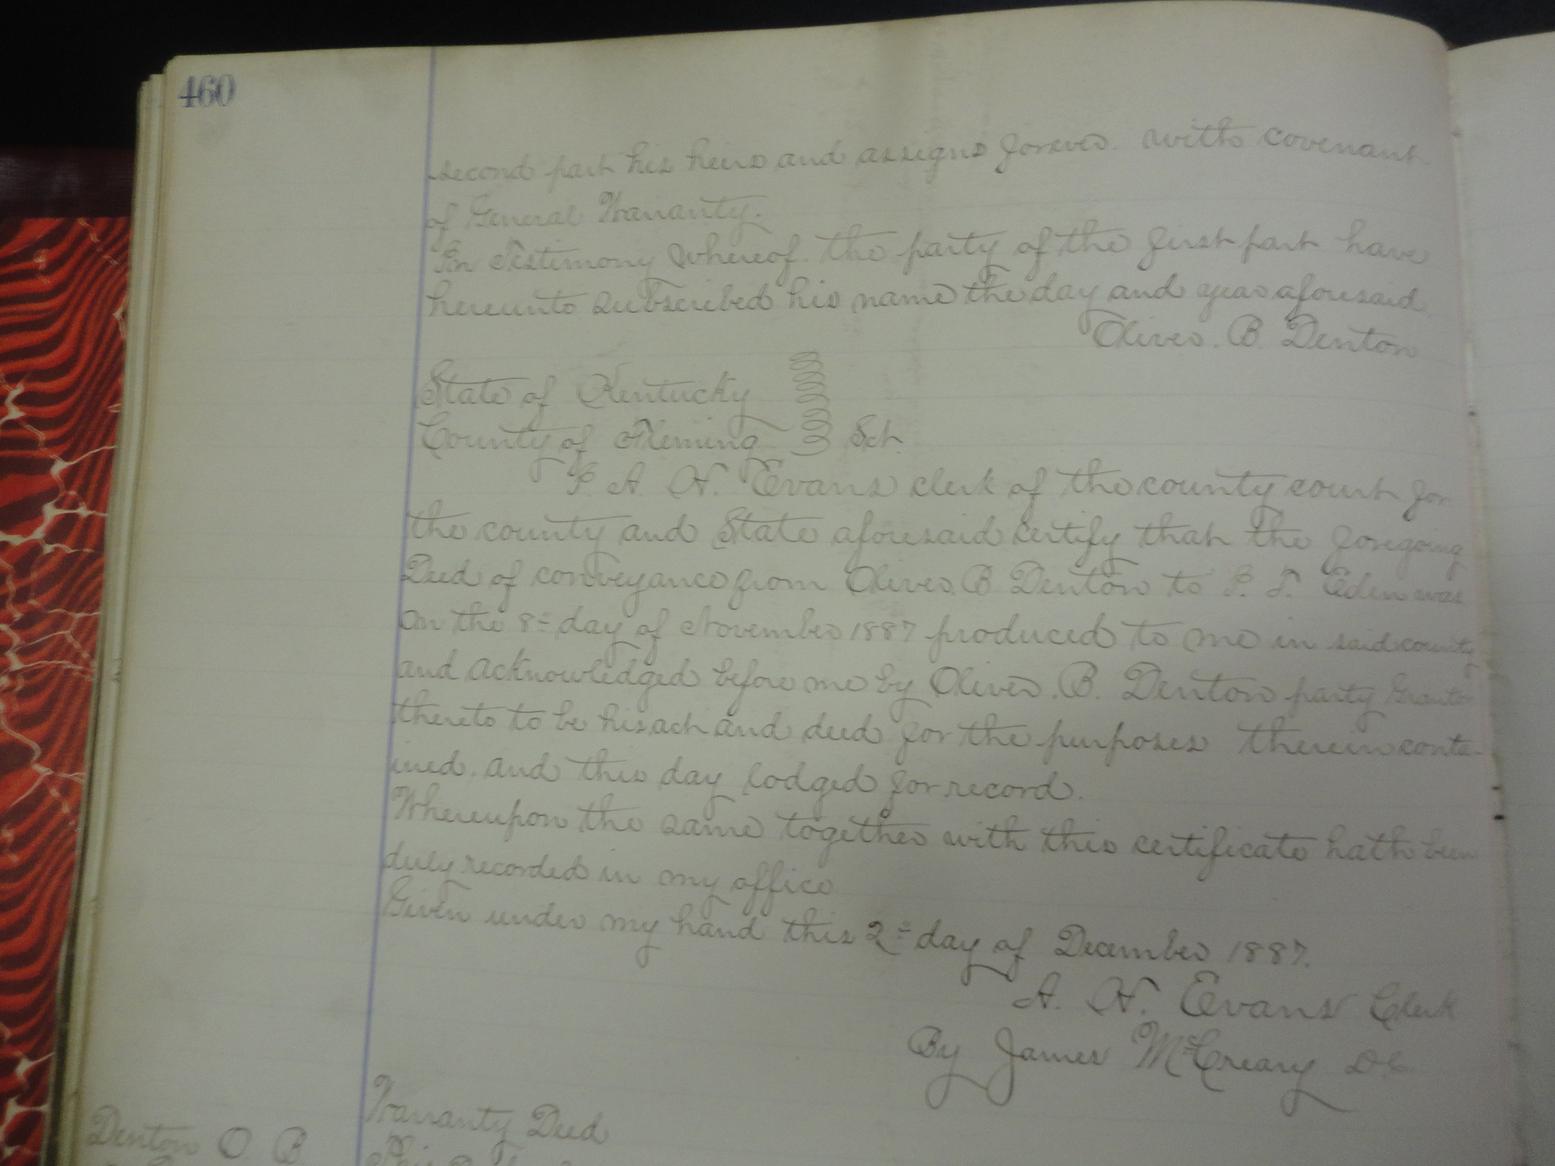 460
second part his heirs and assigns forever. with covenant
of General Warranty.
In Testimony Whereof. the party of the first part have
hereunto subscribed his name the day and year aforesaid.
Oliver. B. Denton
State of Kentucky
County of Fleming Sct.
I A. H. Evans clerk of the county court for
the county and State aforesaid certify that the foregoing
Deed of conveyance from Oliver B Denton to Eden was
on the 8= day of November 1887 produced to me in said county
and acknowledged before me by Oliver. B. Denton party Grantor
thereto to be his act and deed for the purposes therein conta-
ined. and this day lodged for record.
Whereupon the same together with this certificate hath been
duly recorded in my office
Given under my hand this 2= day of December 1887.
A. H. Evans Clerk
By James McCreary DC
Warranty Deed
Denton O B